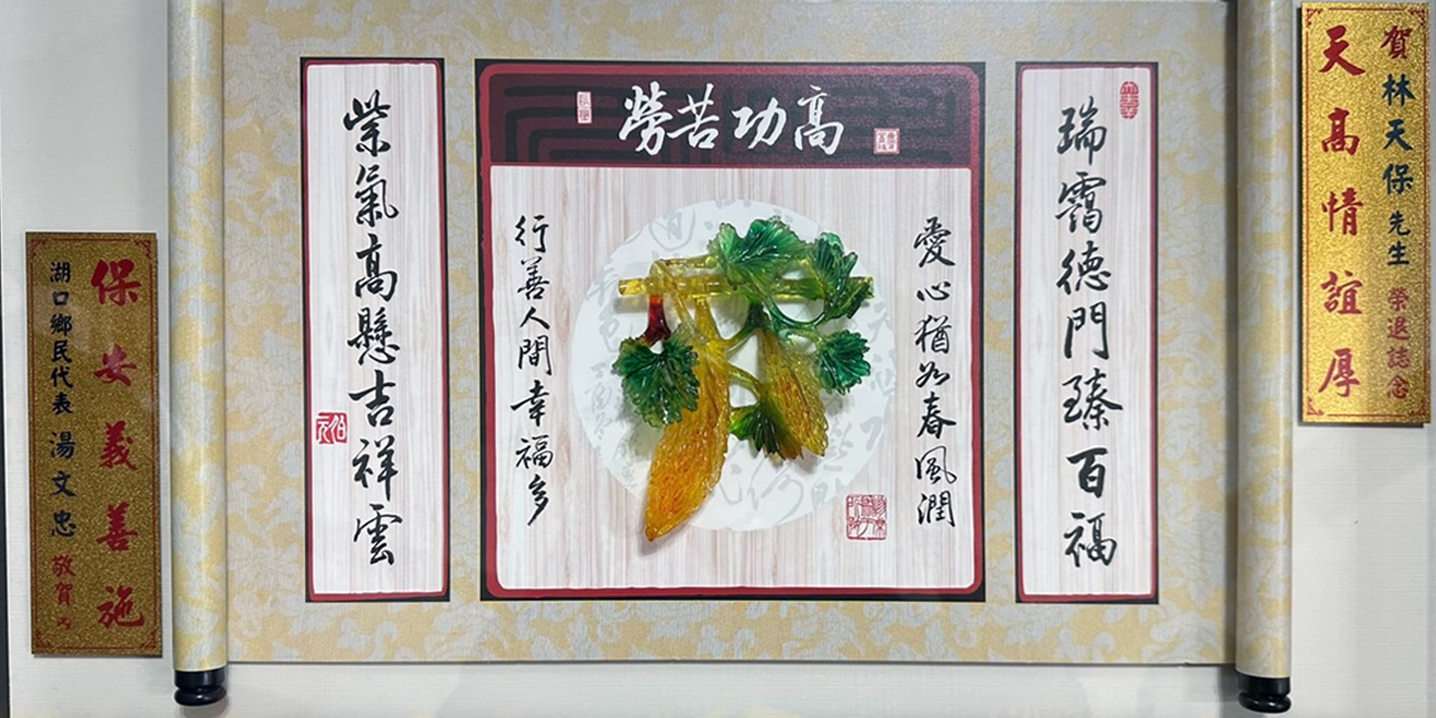 賀林天保先生 榮退誌念
天高情誼厚
瑞靄德門臻百福
勞苦功高
愛心猶如春風潤
行善人間幸福多
紫氣高懸吉祥雲
保安義善施
湖口鄉民代表 湯文忠 敬賀